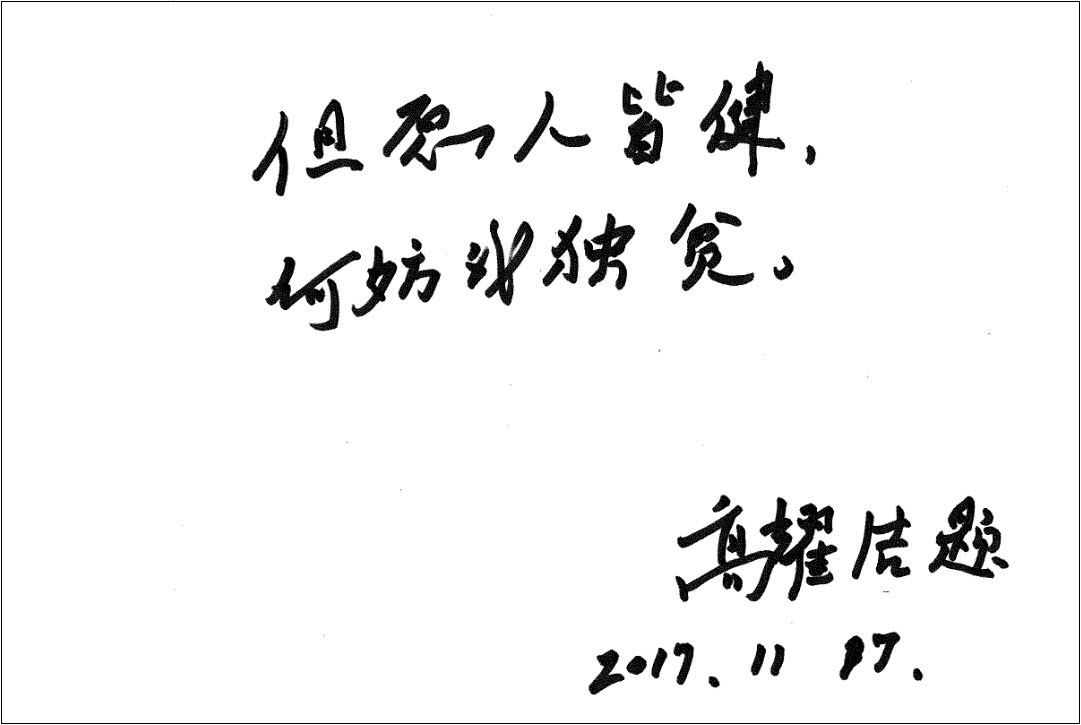 但愿人皆健，
何妨我独贫。
高耀洁题
2017.11 17.